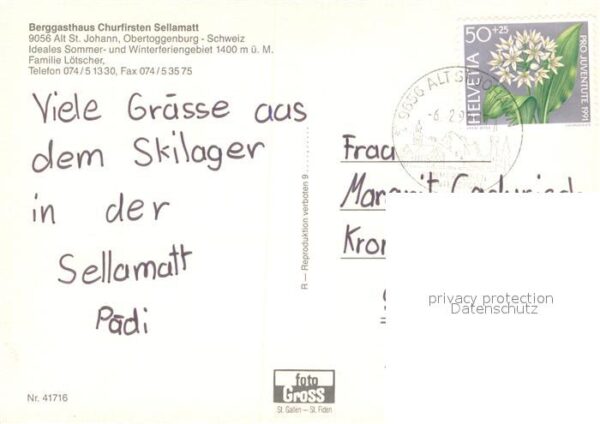 Berggasthaus Churfirsten Sellamatt
9056 Alt St. Johann, Obertoggenburg - Schweiz
Ideales Sommer- und Winterferiengebiet 1400 m ü. M.
Familie Lötscher,
Telefon 074/5 13 30, Fax 074/5 35 75
Viele Grüsse aus
dem Skilager
in der
Sellamatt
Pädi
Nr. 41716
R — Reproduktion verboten 9
foto
Gross
St. Gallen — St. Fiden
50+25
HELVETIA
PRO JUVENTUTE 1991
9656 ALT ST. JOHANN
-6. 2. 9
Frau
Margrit
privacy protection
Datenschutz